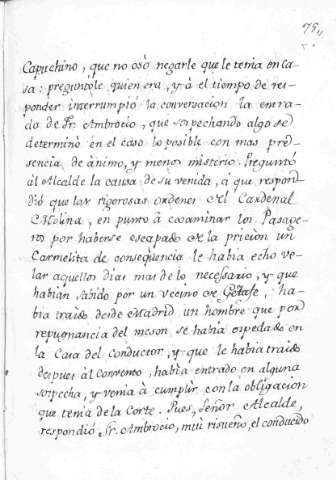 75,,
Capuchino, que no osò negarle que le tenia en Ca-
sa: preguntole quien era, y à el tiempo de res-
ponder interrumpiò la conversacion la entra-
da de Fr. Ambrocio, que sospechando algo se
determinò en el caso lo posible con mas pre-
sencia de ànimo, y menos misterio. Preguntò
àl Alcalde la causa de su venida, à que respon-
diò que las rigorosas ordenes del Cardenal
Molina, en punto à examinar los Pasage-
ros por haberse escapado de la pricion un
Carmelita de conseqüencia le habia echo ve-
lar aquellos dias mas de lo necessario, y que
habian sabido por un vecino de Getafe, ha-
bia traido desde Madrid un hombre que por
repugnancia del meson se habia ospedado en
la Casa del conductor, y que le habia traido
despues àl Convento, habia entrado en alguna
sospecha, y venia à cumplir con la obligacion
que tenia de la Corte. Pues, Señor Alcalde,
respondiò Fr. Ambrocio, mui risueño, el conducido